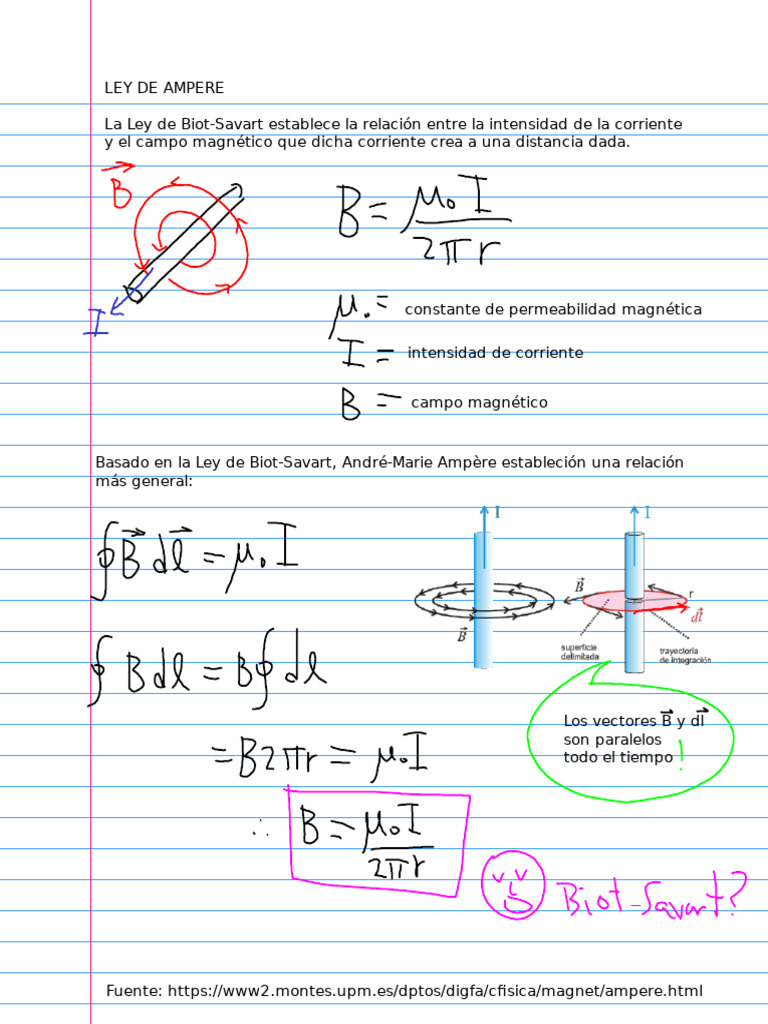 LEY DE AMPERE
La Ley de Biot-Savart establece la relación entre la intensidad de la corriente
y el campo magnético que dicha corriente crea a una distancia dada.
B⃗
I
B = μ₀I / 2πr
μ₀ = constante de permeabilidad magnética
I = intensidad de corriente
B = campo magnético
Basado en la Ley de Biot-Savart, André-Marie Ampère estableción una relación
más general:
∮ B⃗ dl⃗ = μ₀ I
I
B⃗
I
B⃗
r
dl⃗
superficie
delimitada
trayectoria
de integración
∮ B dl = B ∮ dl
Los vectores B⃗ y dl⃗
son paralelos
todo el tiempo !
= B2πr = μ₀I
∴ B = μ₀I / 2πr
Biot-Savart?
Fuente: https://www2.montes.upm.es/dptos/digfa/cfisica/magnet/ampere.html